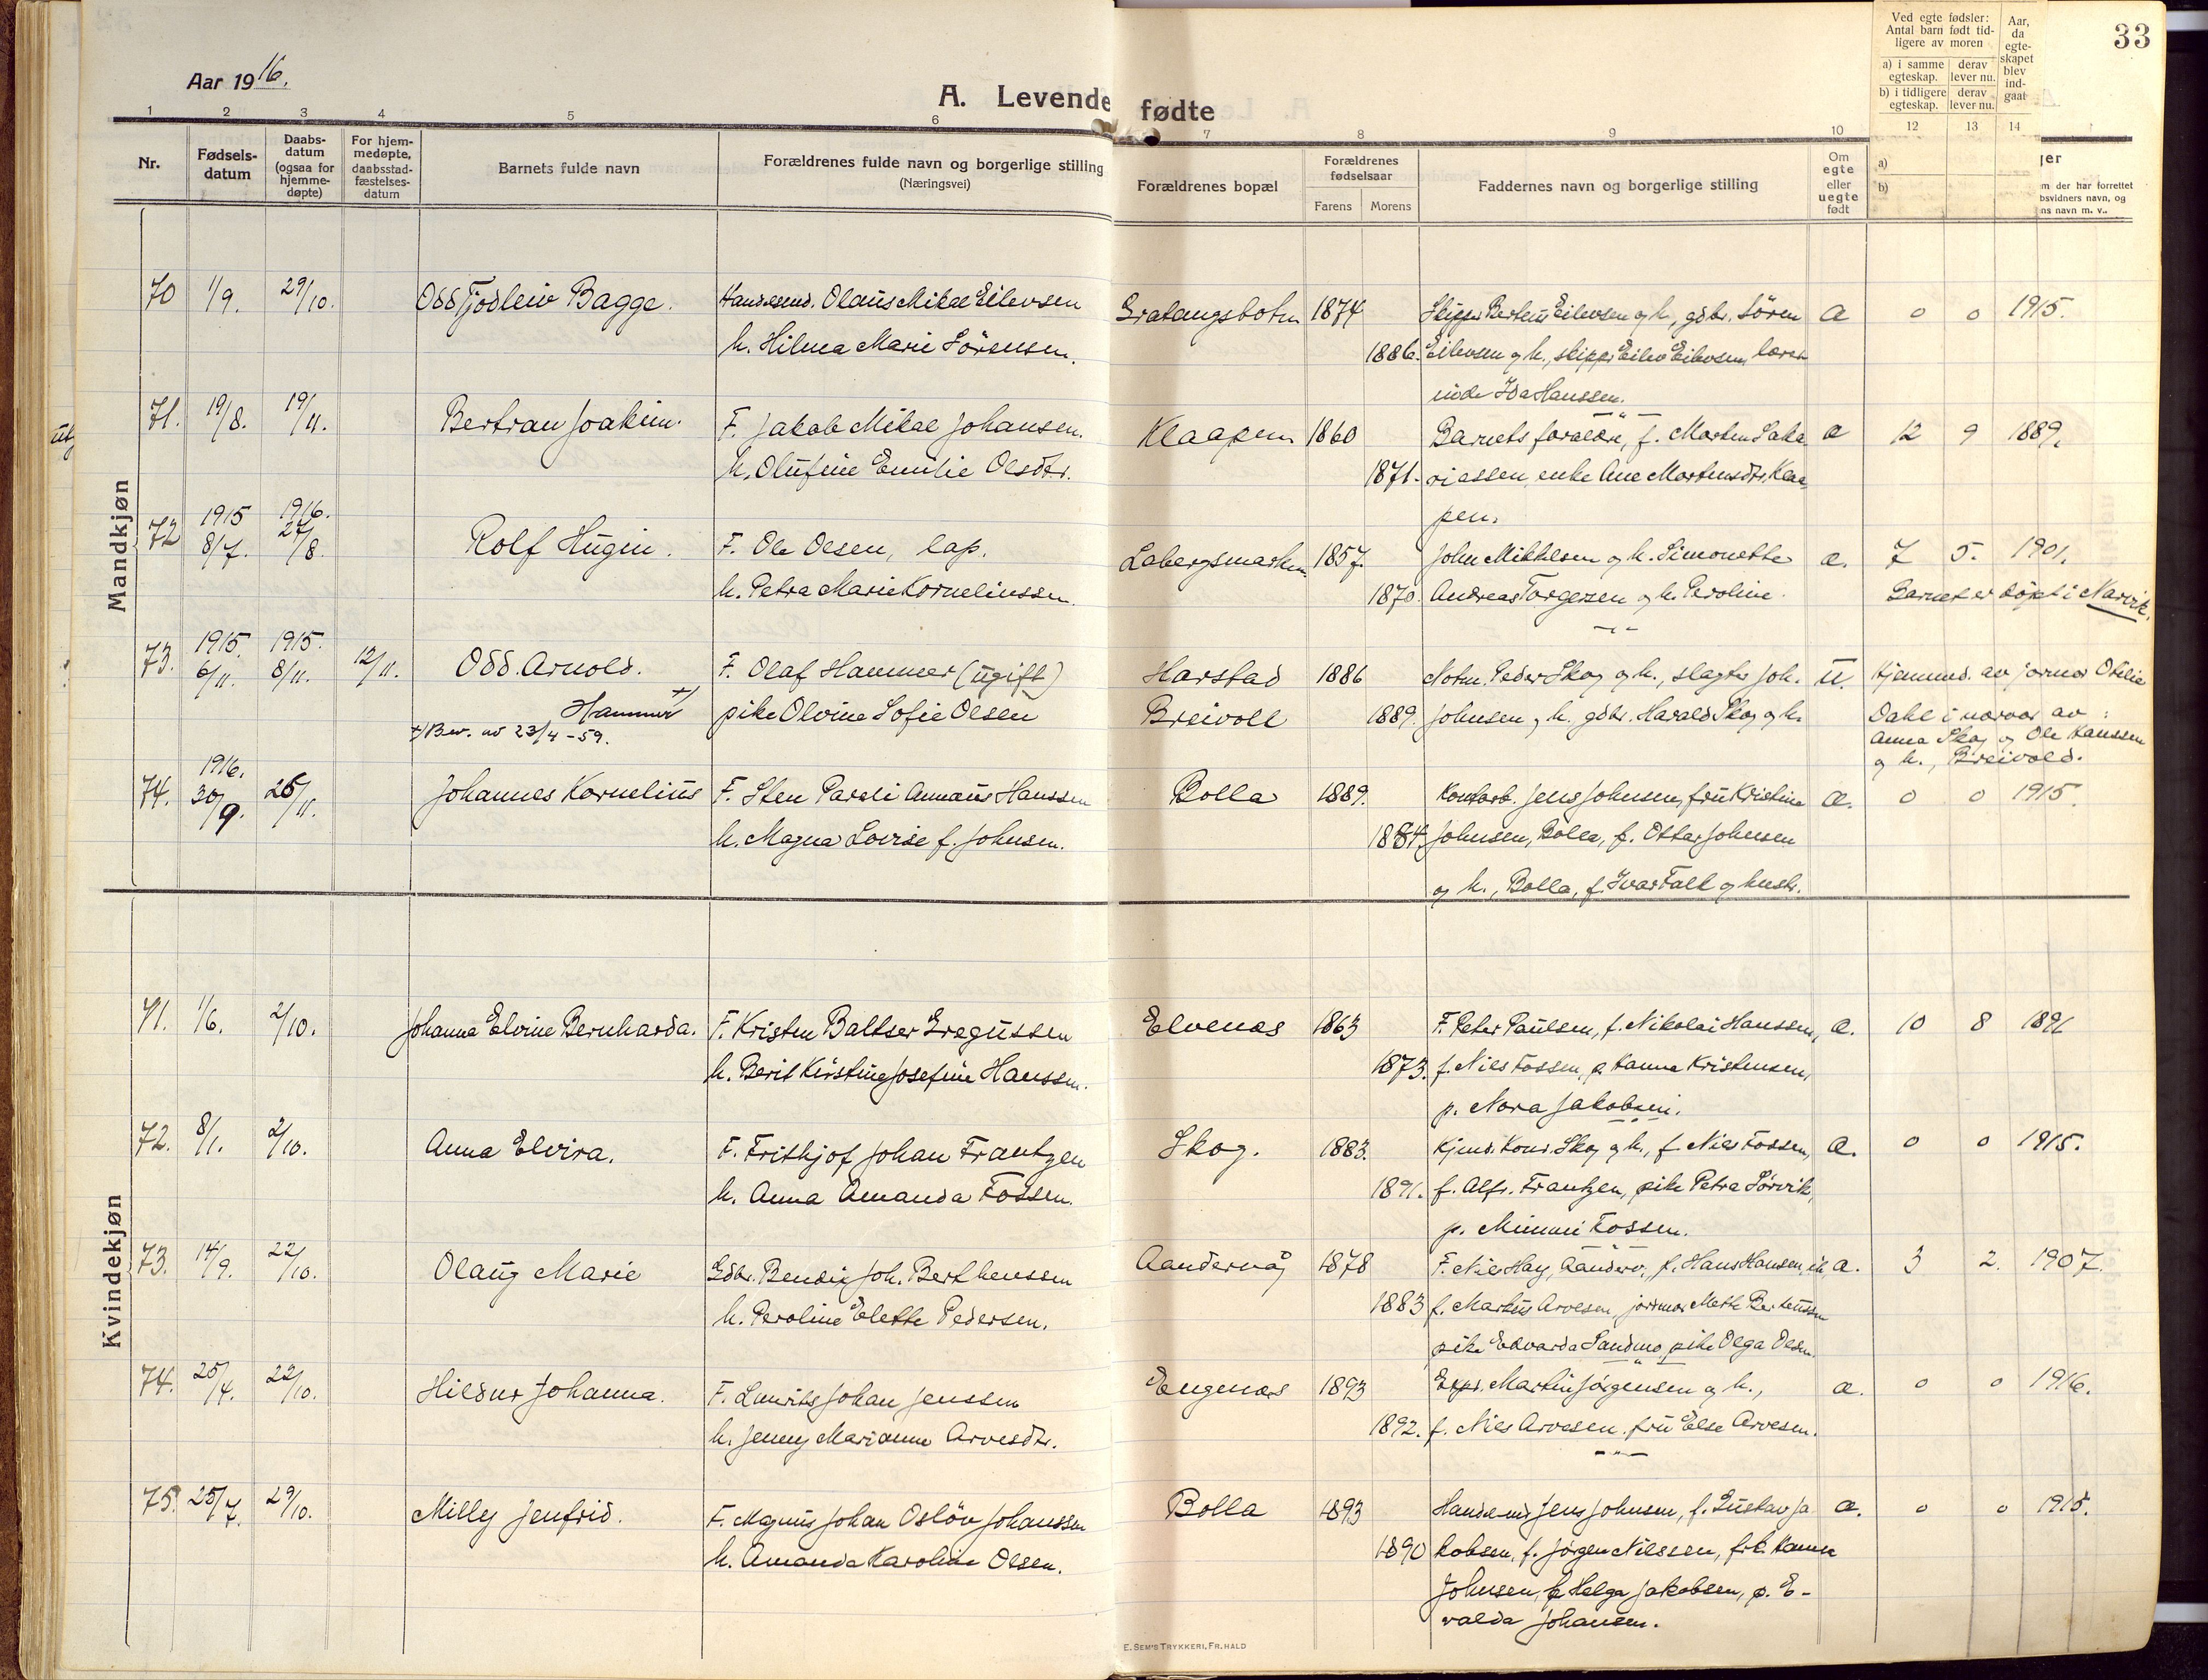 Aar 1916.
A. Levende fødte
33
Ved egte fødsler: Antal barn født tidligere av moren
a) i samme egteskap. derav lever nu.
b) i tidligere egteskap. derav lever nu.
Aar, da egteskapet blev indgaat
1 2 3 4 5 6 7 8 9 10 12 13 14
Nr.
Fødselsdatum
Daabsdatum (ogsaa for hjemmedøpte)
For hjemmedøpte, daabsstadfæstelsesdatum
Barnets fulde navn
Forældrenes fulde navn og borgerlige stilling
(Næringsvei)
Forældrenes bopæl
Forældrenes fødselsaar
Farens Morens
Faddernes navn og borgerlige stilling
Om egte eller uegte født
a)
b)
Mandkjøn
70 1/9. 29/10. Odd Tjodleiv Bagge. Olaus Mikal Eilevsen Gratangsbotn 1874 Skipper Berteus Eilevsen og h., gdbr. Sören æ 0 0 1915.
h. Hilma Marie Sörensen. 1886. Eilevsen og h., skipper Eilev Eilevsen, lærer
inde Ida Hanssen.
71. 19/8. 19/11. Bertran Joakim. F. Jakob Mikal Johansen. Klaapen 1860 Barnets forældre, f. Morten Saka æ 12 9 1889.
h. Olufine Emilie Olsdtr. 1871. riassen, enke Ane Mortensdtr. Klaa
pen.
72 1915 8/7. 1916. 27/8. Rolf Hugin. F. Ole Olsen, lap. Labergsmarken 1857. John Mikkelsen og h. Simonette æ. 7 5. 1901.
h. Petra Marie Korneliussen. 1870. Andreas Torgersen og h. Peroline. Barnet er döpt i Narvik.
73. 1915. 6/11. 1915. 8/11. 12/11. Odd Arnold. F. Olaf Hammer (ugift) Harstad 1886 Peder Skog og h., slagter Joh. u. Hjemmed. av jormor Otelie
Hammer +) pike Olvine Sofie Olsen Breivoll 1889. Johnsen og h. gdbr. Harald Skog og h. Dahl i nærvær av:
+) Bev. av 23/4-59. Anna Skog og Ole Hanssen
og h., Breivold.
74. 1916. 30/9. 26/11. Johannes Kornelius F. Sten Pareli Annæus Hanssen Bolla 1889. Jens Johnsen, fru Kristina æ. 0 0 1915.
h. Magna Lovise f. Johnsen. Johnsen, Bolla, f. Ottar Johnsen
og h., Bolla, f. Ivar Falk og hustr.
Kvindekjøn
71. 1/6. 2/10. Johanna Elvine Bernharda. F. Kristen Baltser Gregussen Elvenes 1863 F. Peter Paulsen, f. Nikolai Hanssen, æ. 10 8 1891
h. Berit Kirstine Josefine Hanssen. 1873. f. Nils Fossen, p. Hanna Kristensen,
p. Nora Jakobsen.
72. 8/1. 2/10. Anna Elvira. F. Frithjof Johan Frantzen Skog. 1883. Kjmd. Konr. Skog og h., f. Nils Fossen, æ. 0 0 1915.
h. Anna Amanda Fossen. 1891. f. Alfr. Frantzen, pike Petra Sörvik,
p. Mimmi Fossen.
73. 14/9. 22/10. Olaug Marie Gdbr. Bendix Joh. Berthenssen Aandervåg 1878 F. Nils Hay, Aanderv., f. Hans Hansen, æ. 3 2. 1907.
h. Peroline Elette Pedersen. 1883 f. Markus Arvesen, jormor Mette Berteussen
pike Edvarda Sandmo, pike Olga Olsen.
74. 25/4. 22/10. Hildur Johanna. F. Laurits Johan Jenssen Engenes 1893 Exp. Martin Jörgensen og h., æ. 0 0 1916.
h. Jenny Marianne Arvesdtr. 1892. f. Nils Arvesen, fru Else Arvesen.
75. 25/7. 29/10. Milly Jenfrid. F. Magnus Johan Oslöv Johanssen Bolla 1893 Handelsmd. Jens Johnsen, f. Gustav Ja æ. 0 0 1915.
h. Amanda Karoline Olsen. 1890 kobsen, f. Jörgen Nilssen, frk. Hanna
Johnsen, f. Helga Jakobsen, p. E-
valda Johansen.
E. SEM'S TRYKKERI, FR.HALD